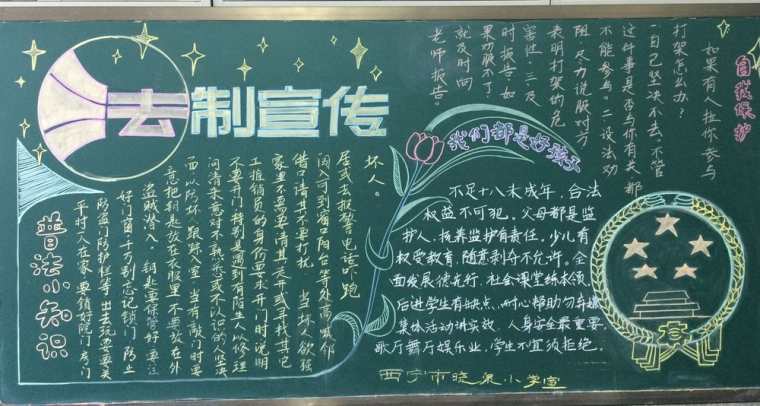 法制宣传
自我保护
如果有人拉你参与
打架怎么办？
一自己坚决不去，不管
这件事是否与你有关，都
不能参与。二设法劝
阻，尽力说服对方
表明打架的危
害性。三、及
时报告，如
果劝服不了，
就及时向
老师报告。
普法小知识
平时人在家，要锁好院门、房门
防盗门防护栏等，出去玩要要关
好门窗千万别忘记锁门，防止
盗贼潜入，钥匙要保管好，要注
意把钥匙放在衣服里，不要放在外
面以防坏跟踪入室，当有敲门时要
问清来意对不熟悉或不认识的人坚决
不要开门，特别是遇到有陌生人以修理
工推销员的身份要求开门时，说明
家里不需要，请其走开或寻找其它
借口请其不要打扰。当坏人欲强
闯入可到窗口阳台等处高喊邻
居或去报警电话吓跑
坏人。
我们都是好孩子
不足十八未成年，合法
权益不可犯。父母都是监
护人，抚养监护有责任。少儿有
权受教育，随意剥夺不允许。全
面发展德先行，社会课堂练本领。
后进学生有缺点，耐心帮助勿弃嫌
集体活动讲实效，人身安全最重要。
歌厅舞厅娱乐业，学生不宜须拒绝。
西宁市晓泉小学宣